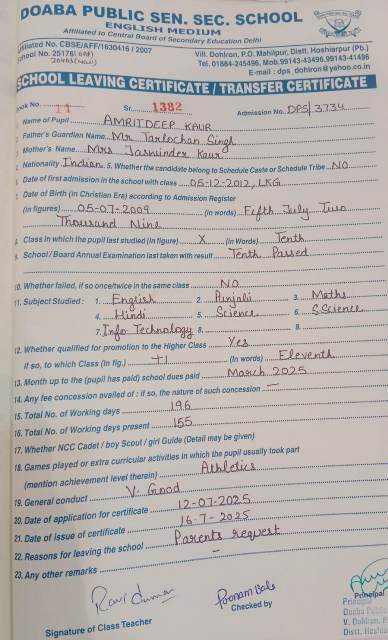 DOABA PUBLIC SEN. SEC. SCHOOL
ENGLISH MEDIUM
Affiliated to Central Board of Secondary Education Delhi
Affiliated No. CBSE/AFF/1630416 / 2007
School No. 25176 (Old)
20405 (New)
Vill. Dohlron, P.O. Mahilpur, Distt. Hoshiarpur (Pb.)
Tel. 01884-245496, Mob.99143-43496,99143-41496
E-mail : dps_dohlron@yahoo.co.in
SCHOOL LEAVING CERTIFICATE / TRANSFER CERTIFICATE
Book No. 11 Sr. 1382 Admission No. DPS/3734
Name of Pupil AMRITDEEP KAUR
Father's Guardian Name Mr Tarlochan Singh
Mother's Name Mrs Jaswinder Kaur
Nationality Indian 5. Whether the candidate belong to Schedule Caste or Schedule Tribe NO
Date of first admission in the school with class 05-12-2012, LKG
Date of Birth (in Christian Era) according to Admission Register
(in figures) 05-07-2009 (in words) Fifth July Two
Thousand Nine
Class in which the pupil last studied (in figure) X (in Words) Tenth
School / Board Annual Examination last taken with result Tenth Passed
10. Whether failed, if so once/twice in the same class NO
11. Subject Studied : 1. English 2. Punjabi 3. Maths
4. Hindi 5. Science 6. S.Science
7. Info Technology 8. 9.
12. Whether qualified for promotion to the Higher Class Yes
if so, to which Class (In fig.) +1 (In words) Eleventh
13. Month up to the (pupil has paid) school dues paid March 2025
14. Any fee concession availed of : if so, the nature of such concession —
15. Total No. of Working days 196
16. Total No. of Working days present 155
17. Whether NCC Cadet / boy Scout / girl Guide (Detail may be given)
18. Games played or extra curricular activities in which the pupil usually took part
(mention achievement level therein) Athletics
19. General conduct V. Good
20. Date of application for certificate 12-07-2025
21. Date of issue of certificate 16-7-2025
22. Reasons for leaving the school Parents request
23. Any other remarks —
Ravi Kumar
Signature of Class Teacher
Poonam Bala
Checked by
Principal
Principal
Doaba Public
V. Dohlron, P
Distt. Hoshia